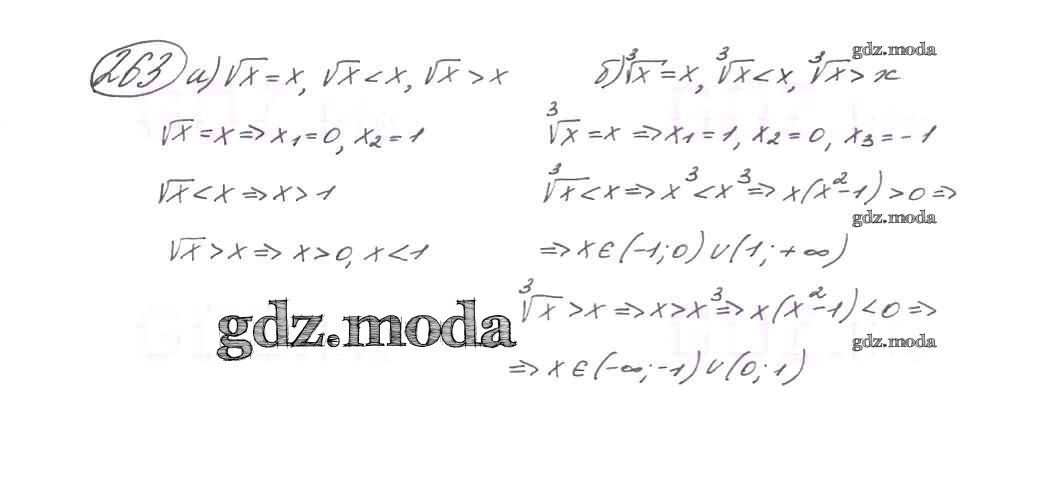 263 а) √x = x, √x < x, √x > x
√x = x ⇒ x₁ = 0, x₂ = 1
√x < x ⇒ x > 1
√x > x ⇒ x > 0, x < 1
gdz.moda
gdz.moda
б) ³√x = x, ³√x < x, ³√x > x
³√x = x ⇒ x₁ = 1, x₂ = 0, x₃ = -1
³√x < x ⇒ x³ < x³ ⇒ x(x²-1) > 0 ⇒
gdz.moda
⇒ x ∈ (-1; 0) ∪ (1; +∞)
³√x > x ⇒ x > x³ ⇒ x(x²-1) < 0 ⇒
gdz.moda
⇒ x ∈ (-∞; -1) ∪ (0; 1)